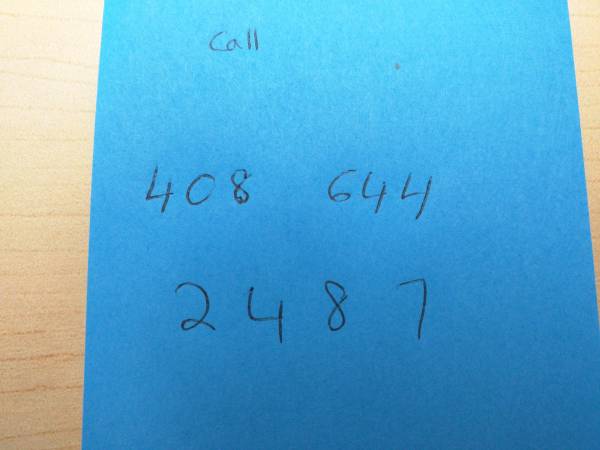 Call
408 644
2487